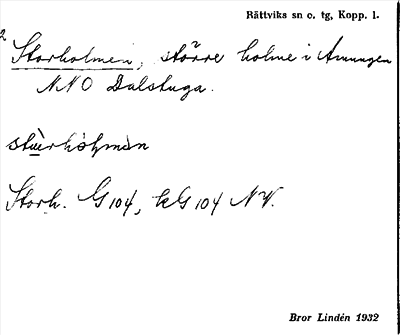 Rättviks sn o. tg, Kopp. l.
2
Storholmen, större holme i Amungen
NNO Dalstuga.
stu̲erhòḷmàn
Storh. G 104, kG 104 NV.
Bror Lindén 1932